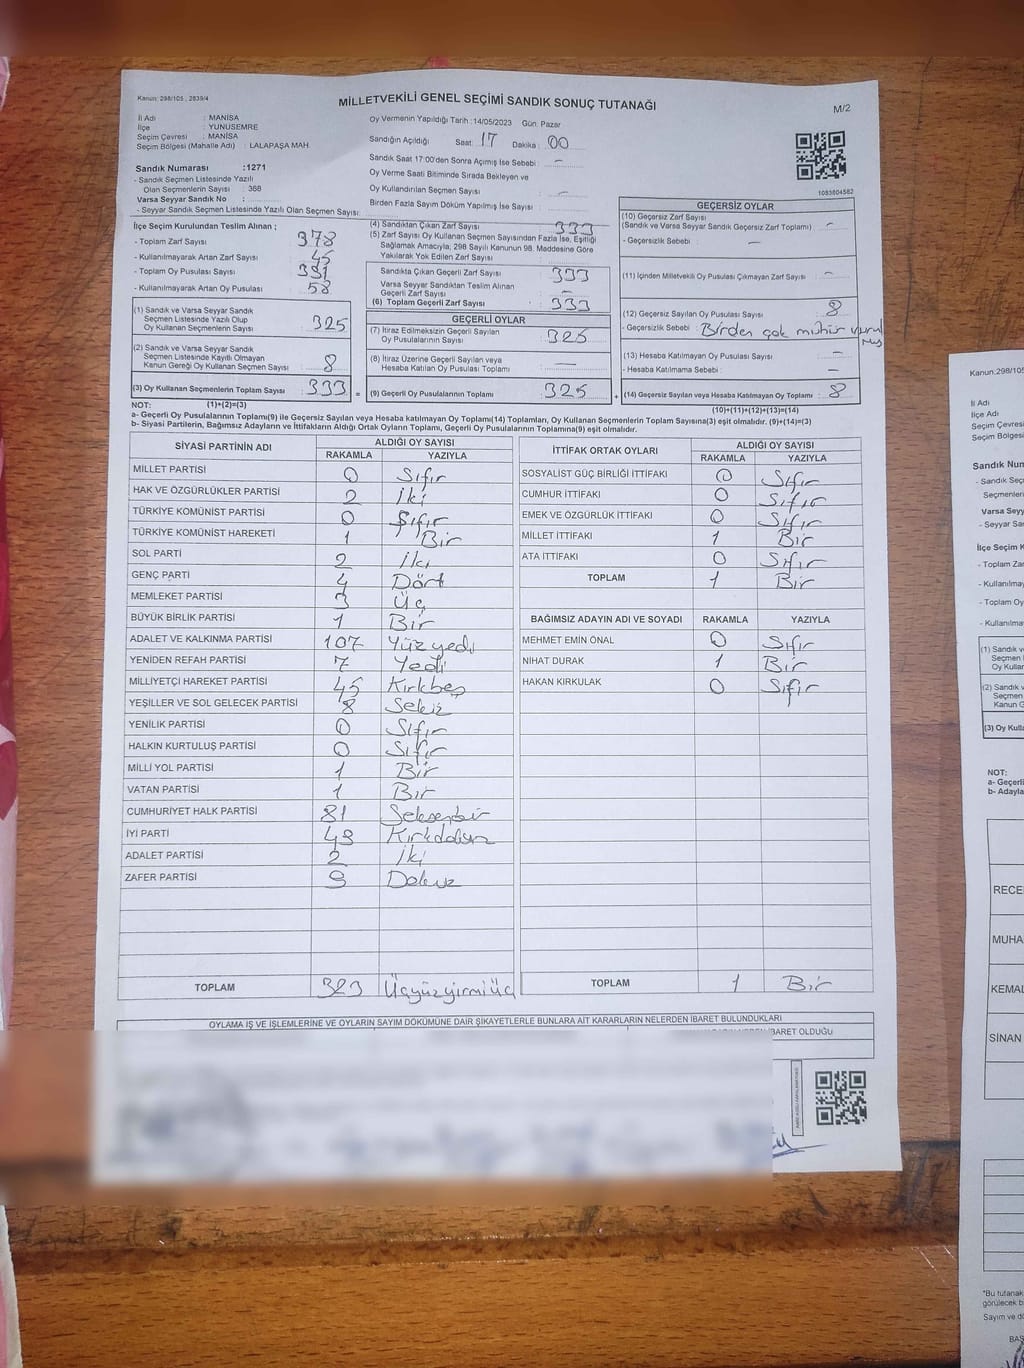 Kanun: 298/105 , 2839/4
MİLLETVEKİLİ GENEL SEÇİMİ SANDIK SONUÇ TUTANAĞI
M/2
İl Adı : MANİSA
İlçe : YUNUSEMRE
Seçim Çevresi : MANİSA
Seçim Bölgesi (Mahalle Adı) : LALAPAŞA MAH.
Sandık Numarası :1271
- Sandık Seçmen Listesinde Yazılı
Olan Seçmenlerin Sayısı : 368
Varsa Seyyar Sandık No :
- Seyyar Sandık Seçmen Listesinde Yazılı Olan Seçmen Sayısı:
Oy Vermenin Yapıldığı Tarih :14/05/2023 Gün: Pazar
Sandığın Açıldığı Saat: 17 Dakika: 00
Sandık Saat 17:00'den Sonra Açımış İse Sebebi : -
Oy Verme Saati Bitiminde Sırada Bekleyen ve
Oy Kullandırılan Seçmen Sayısı : -
Birden Fazla Sayım Döküm Yapılmış İse Sayısı :
1083804582
İlçe Seçim Kurulundan Teslim Alınan ;
- Toplam Zarf Sayısı : 378
- Kullanılmayarak Artan Zarf Sayısı : 45
- Toplam Oy Pusulası Sayısı : 391
- Kullanılmayarak Artan Oy Pusulası : 58
(1) Sandık ve Varsa Seyyar Sandık
Seçmen Listesinde Yazılı Olup
Oy Kullanan Seçmenlerin Sayısı : 325
(2) Sandık ve Varsa Seyyar Sandık
Seçmen Listesinde Kayıtlı Olmayan
Kanun Gereği Oy Kullanan Seçmen Sayısı : 8
(3) Oy Kullanan Seçmenlerin Toplam Sayısı : 333
(4) Sandıktan Çıkan Zarf Sayısı : 333
(5) Zarf Sayısı Oy Kullanan Seçmen Sayısından Fazla İse, Eşitliği
Sağlamak Amacıyla; 298 Sayılı Kanunun 98. Maddesine Göre
Yakılarak Yok Edilen Zarf Sayısı :
Sandıkta Çıkan Geçerli Zarf Sayısı : 333
Varsa Seyyar Sandıktan Teslim Alınan
Geçerli Zarf Sayısı : -
(6) Toplam Geçerli Zarf Sayısı : 333
GEÇERLİ OYLAR
(7) İtiraz Edilmeksizin Geçerli Sayılan
Oy Pusulalarının Sayısı : 325
(8) İtiraz Üzerine Geçerli Sayılan veya
Hesaba Katılan Oy Pusulası Toplamı : -
= (9) Geçerli Oy Pusulalarının Toplamı : 325
GEÇERSİZ OYLAR
(10) Geçersiz Zarf Sayısı
(Sandık ve Varsa Seyyar Sandık Geçersiz Zarf Toplamı) : -
- Geçersizlik Sebebi : -
(11) İçinden Milletvekili Oy Pusulası Çıkmayan Zarf Sayısı : -
(12) Geçersiz Sayılan Oy Pusulası Sayısı : 8
- Geçersizlik Sebebi : Birden çok mühür vurulmuş
(13) Hesaba Katılmayan Oy Pusulası Sayısı : -
- Hesaba Katılmama Sebebi : -
+ (14) Geçersiz Sayılan veya Hesaba Katılmayan Oy Toplamı : 8
NOT: (1)+(2)=(3)
(10)+(11)+(12)+(13)=(14)
a- Geçerli Oy Pusulalarının Toplamı(9) ile Geçersiz Sayılan veya Hesap katılmayan Oy Toplamı(14) Toplamları, Oy Kullanan Seçmenlerin Toplam Sayısına(3) eşit olmalıdır. (9)+(14)=(3)
b- Siyasi Partilerin, Bağımsız Adayların ve İttifakların Aldığı Ortak Oyların Toplamı, Geçerli Oy Pusulalarının Toplamına(9) eşit olmalıdır.
SİYASİ PARTİNİN ADI ALDIĞI OY SAYISI
RAKAMLA YAZIYLA
MİLLET PARTİSİ 0 Sıfır
HAK VE ÖZGÜRLÜKLER PARTİSİ 2 İki
TÜRKİYE KOMÜNİST PARTİSİ 0 Sıfır
TÜRKİYE KOMÜNİST HAREKETİ 1 Bir
SOL PARTİ 2 İki
GENÇ PARTİ 4 Dört
MEMLEKET PARTİSİ 3 Üç
BÜYÜK BİRLİK PARTİSİ 1 Bir
ADALET VE KALKINMA PARTİSİ 107 Yüzyedi
YENİDEN REFAH PARTİSİ 7 Yedi
MİLLİYETÇİ HAREKET PARTİSİ 45 Kırkbeş
YEŞİLLER VE SOL GELECEK PARTİSİ 8 Sekiz
YENİLİK PARTİSİ 0 Sıfır
HALKIN KURTULUŞ PARTİSİ 0 Sıfır
MİLLİ YOL PARTİSİ 1 Bir
VATAN PARTİSİ 1 Bir
CUMHURİYET HALK PARTİSİ 81 Seksenbir
İYİ PARTİ 49 Kırkdokuz
ADALET PARTİSİ 2 İki
ZAFER PARTİSİ 9 Dokuz
TOPLAM 323 Üçyüzyirmiüç
İTTİFAK ORTAK OYLARI ALDIĞI OY SAYISI
RAKAMLA YAZIYLA
SOSYALİST GÜÇ BİRLİĞİ İTTİFAKI 0 Sıfır
CUMHUR İTTİFAKI 0 Sıfır
EMEK VE ÖZGÜRLÜK İTTİFAKI 0 Sıfır
MİLLET İTTİFAKI 1 Bir
ATA İTTİFAKI 0 Sıfır
TOPLAM 1 Bir
BAĞIMSIZ ADAYIN ADI VE SOYADI RAKAMLA YAZIYLA
MEHMET EMİN ÖNAL 0 Sıfır
NİHAT DURAK 1 Bir
HAKAN KIRKULAK 0 Sıfır
TOPLAM 1 Bir
OYLAMA İŞ VE İŞLEMLERİNE VE OYLARIN SAYIM DÖKÜMÜNE DAİR ŞİKAYETLERLE BUNLARA AİT KARARLARIN NELERDEN İBARET BULUNDUKLARI
İBARET OLDUĞU
Kanun:298/105
İl Adı
İlçe Adı
Seçim Çevresi
Seçim Bölgesi
Sandık Num
- Sandık Seç
Seçmenleri
Varsa Seyy
- Seyyar San
İlçe Seçim K
- Toplam Za
- Kullanılmay
- Toplam Oy
- Kullanılma
(1) Sandık v
Seçmen
Oy Kullan
(2) Sandık v
Seçmen
Kanun G
(3) Oy Kulla
NOT:
a- Geçerli
b- Adayla
RECE
MUHA
KEMAL
SİNAN
*Bu tutanak
görülecek b
Sayım ve dö
BAŞ